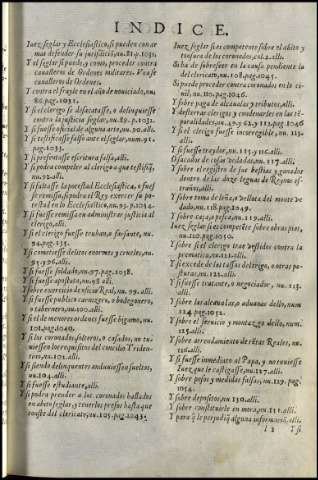 INDICE.
Iuez seglar y Ecclesiastico, si pueden tomar
armas defender su jurisdicion, nu.81.4.1031.
Y el seglar si puede, y como, proceder contra
caualleros de Ordenes militares. Vease
caualleros.
Y contra el frayle en el año de nouiciado, nu.
86. pag. 1031.
Y si el clerigo se desacatasse, o delinquiesse
contra la justicia seglar, nu.89. p.1032.
Y si fuesse oficial de alguna arte, nu.90. alli.
Y si testifico falso ante el seglar, num.91.
pag.
Y si presentasse escritura falsa, alli.
Y si puede compeler al clerigo a que testifiq̃,
nu.92. alli.
Y si faltasse la potestad Ecclesiastica, o fuesse
remissa, si podra el Rey exercer su potestad
en lo Ecclesiastico, nu.93. p.1034.
Y si fuesse remissa en administrar justicia al
clerigo, alli.
Y si el clerigo fuesse truhan, o farsante, nu.
94. pag. 1035.
Y si cometiesse delitos enormes y crueles, nu.
95. y 96. alli.
Y si fuesse soldado, nu.97. pag. 1038.
Y si fuesse apostata, nu.98. alli
Y sobre exercicio de oficio Real, nu.99. alli.
Y si fuesse publico carnicero, o bodegonero,
o tabernero, nu.100. alli.
Y si el de menores ordenes fuesse bigamo, nu.
101. pag. 1040.
Y si los coronados solteros, o casados, no tuuiessen
los requisitos del concilio Tridentino,
nu.102. alli.
Y si siendo delinquentes anduuiessen sueltos,
nu.104. alli.
Y si fuesse estudiante, alli.
Y si podra prender a los coronados hallados
en abito seglar, y tenerlos presos hasta que
conste del clericato, nu.105. pag. 1043.
Iuez seglar si es competente sobre el abito y
tonsura de los coronados, col.2. alli.
Si ha de sobreseer en la causa pendiente la
del clericato, nu.108. pag. 1045.
Si puede proceder contra coronados en lo ciuil,
nu.110. pag. 1046.
Y sobre paga de alcaualas y tributos, alli.
Y desterrar clerigos y condenarles en temporalidades,
nu.49. y 62. y 112. pag. 1046
Y si el clerigo fuesse incorregible, nu.113.
alli.
Y si fuesse traydor, nu.115. y 116. alli.
O sacador de cosas vedadas, nu.117. alli.
Y sobre el registro de sus bestias y ganados
dentro de las doze leguas de Reynos estraños,
alli.
Y sobre toma de leña, o bellota del monte vedado,
nu.118. pag. 1048.
Y sobre caça, o pesca, nu.119. alli.
Iuez seglar si es competẽte sobre obras pias,
nu.120. pag. 1050.
Y sobre si el clerigo trae vestidos contra la
prematica, nu.121. alli.
Y si excede de las tassas del trigo, o otras posturas,
nu.122. alli.
Y si fuesse tratante, o negociador, nu.123.
alli.
Y sobre las alcaualas, o aduanas dello, num
124. pag. 1052.
Y sobre el seruicio y montazgo dello, num.
125. alli.
Y sobre arrendamiento de rẽtas Reales, nu.
126. alli.
Y si fuesse inmediato al Papa, y no tuuiesse
Iuez que le castigasse, nu.127. alli.
Y sobre pesos y medidas falsas, nu.129. pag.
1054.
Y sobre depositos, nu.130. alli.
Y sobre constituirle en mora, nu.131. alli.
Y para q̃ le perjudiq̃ alguna informaciõ, alli.
Y si